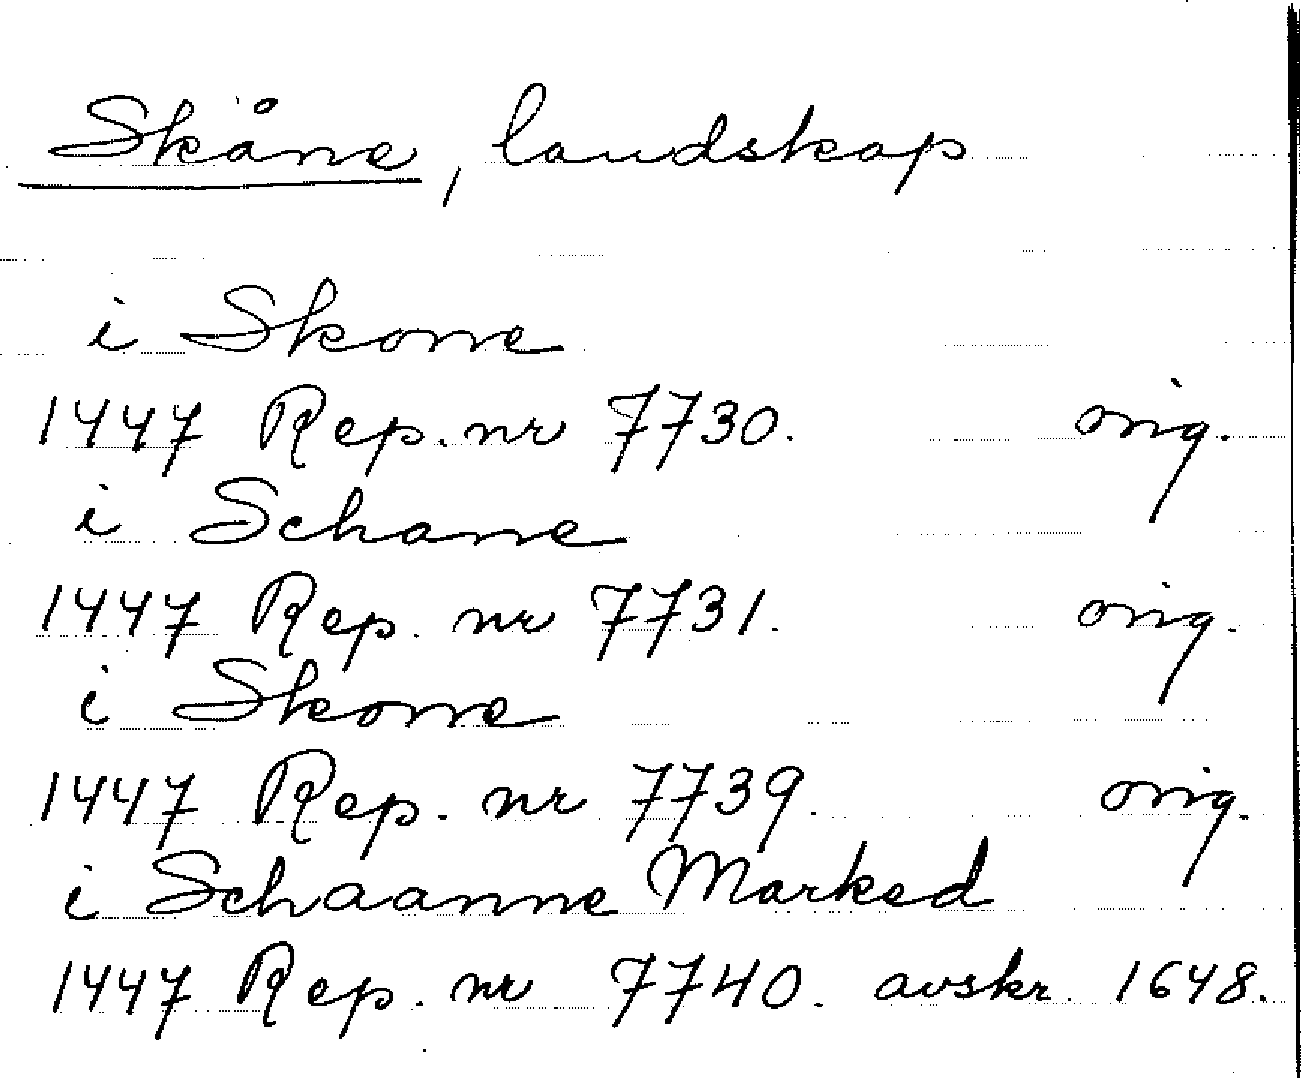 Skåne, landskap
i Skone
1447 Rep. nr 7730. orig.
i Schane
1447 Rep. nr 7731. orig.
i Skone
1447 Rep. nr 7739. orig.
i Schaanne Marked
1447 Rep. nr 7740. avskr. 1648.